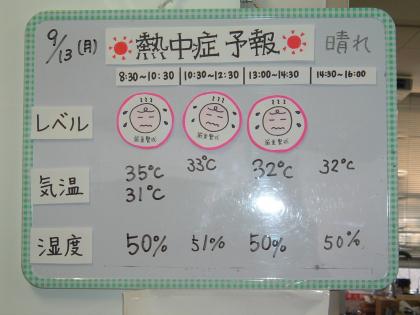 9/13 (月) 熱中症予報 晴れ
8:30~10:30 10:30~12:30 13:00~14:30 14:30~16:00
レベル
厳重警戒 厳重警戒 厳重警戒
気温 35℃ 33℃ 32℃ 32℃
31℃
湿度 50% 51% 50% 50%